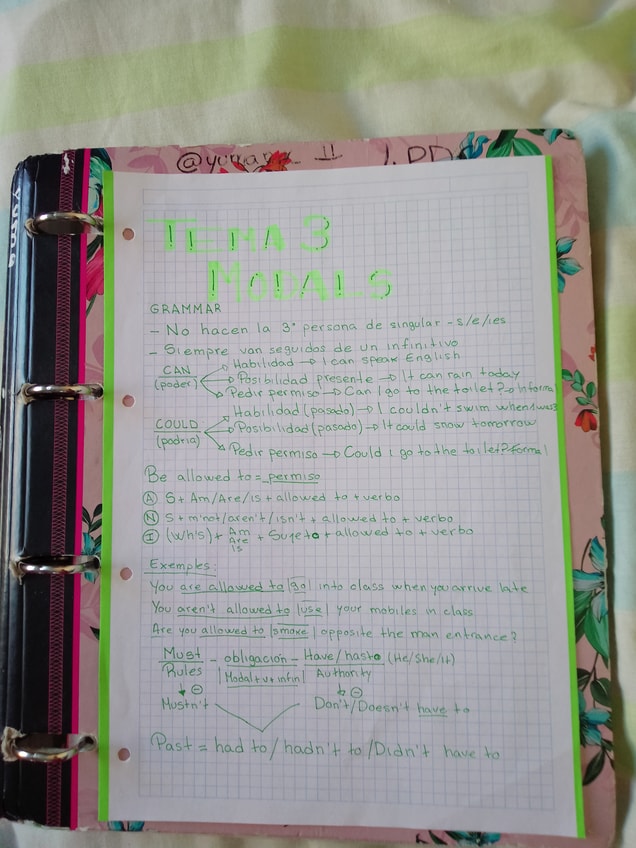 @yumara_ !! J.PD
yuma
TEMA 3
MODALS
GRAMMAR
- No hacen la 3ª persona de singular - s/e/ies
- Siempre van seguidos de un infinitivo
CAN (poder)
Habilidad → I can speak English
Posibilidad presente → It can rain today
Pedir permiso → Can I go to the toilet? → Informal
COULD (podria)
Habilidad (pasado) → I couldn't swim when I was 3
Posibilidad (pasado) → It could snow tomorrow
Pedir permiso → Could I go to the toilet? formal
Be allowed to = permiso
(A) S + Am/Are/is + allowed to + verbo
(N) S + m'not/aren't/isn't + allowed to + verbo
(I) (Wh's) + Am Are is + Sujeto + allowed to + verbo
Exemples:
You are allowed to |go| into class when you arrive late
You aren't allowed to |use| your mobiles in class
Are you allowed to |smoke| opposite the man entrance?
Must - obligación - Have/hasto (He/She/It)
Rules |Modal+v+infin| Authority
↓ ⊖ ↓ ⊖
Mustn't Don't/Doesn't have to
Past = had to / hadn't to / Didn't have to